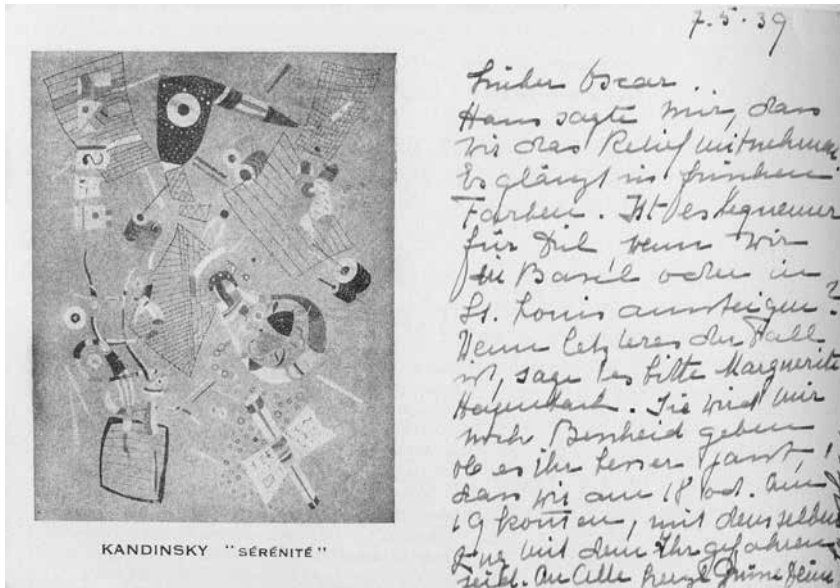 KANDINSKY "SÉRÉNITÉ"
7.5.39
Lieber Oscar.
Hans sagte mir, dass
wir das Relief mitnehmen.
Es glänzt in frischen
Farben. Ist es bequemer
für Dich, wenn wir
in Basel oder in
St. Louis aussteigen?
Wenn letzteres der Fall
ist, sage es bitte Marguerite
Hagenbach. Sie wird mir
noch Bescheid geben
ob es ihr besser passt,
dass wir am 18 od. am
19 kommen, mit demselben
Zug mit dem Ihr gefahren
seid. An Alle